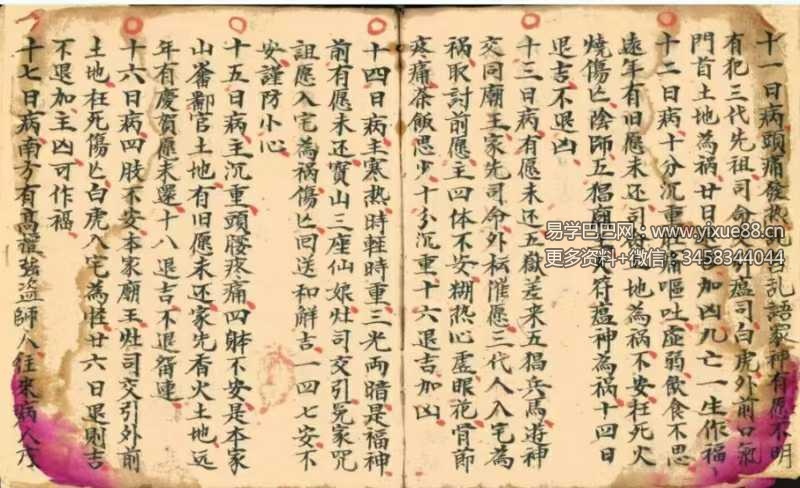 十一日病頭痛發熱乱言乱語家神有愿不明
有犯三代先祖司命交引瘟司白虎外前口氣
門首土地為禍廿日退吉加凶九亡一生作福
十二日病十分沉重牛痛嘔吐虛弱飲食不思
遠年有旧愿未还司命土地為禍不安枉死火
燒傷亡陰師五猖廟王火符瘟神為禍十四日
退吉不退凶
十三日病有愿未还五嶽差来五猖兵馬遊神
交同廟王家先司命外坛催愿三代人入宅為
禍取討前愿主四体不安糊热心虛眼花骨節
疼痛茶飯思少十分沉重十六退吉加凶
十四日病主寒熱時輕時重三光両暗是福神
前有愿未还寶山三座仙娘灶司交引冤家咒
詛愿入宅為禍傷亡回送和解吉一四七安不
安謹防小心
十五日病主沉重頭腰疼痛四躰不安是本家
山畨鄱官土地有旧愿未还家先香火土地远
年有慶賀愿未還十八退吉不退留連
十六日病四肢不安本家廟王灶司交引外前
土地枉死傷亡白虎入宅為怪廿六日退則吉
不退加主凶可作福
十七日病南方有高禮強盜師人往来病人冇
易学巴巴网:www.yixue88.cn
更多资料+微信:3458344044